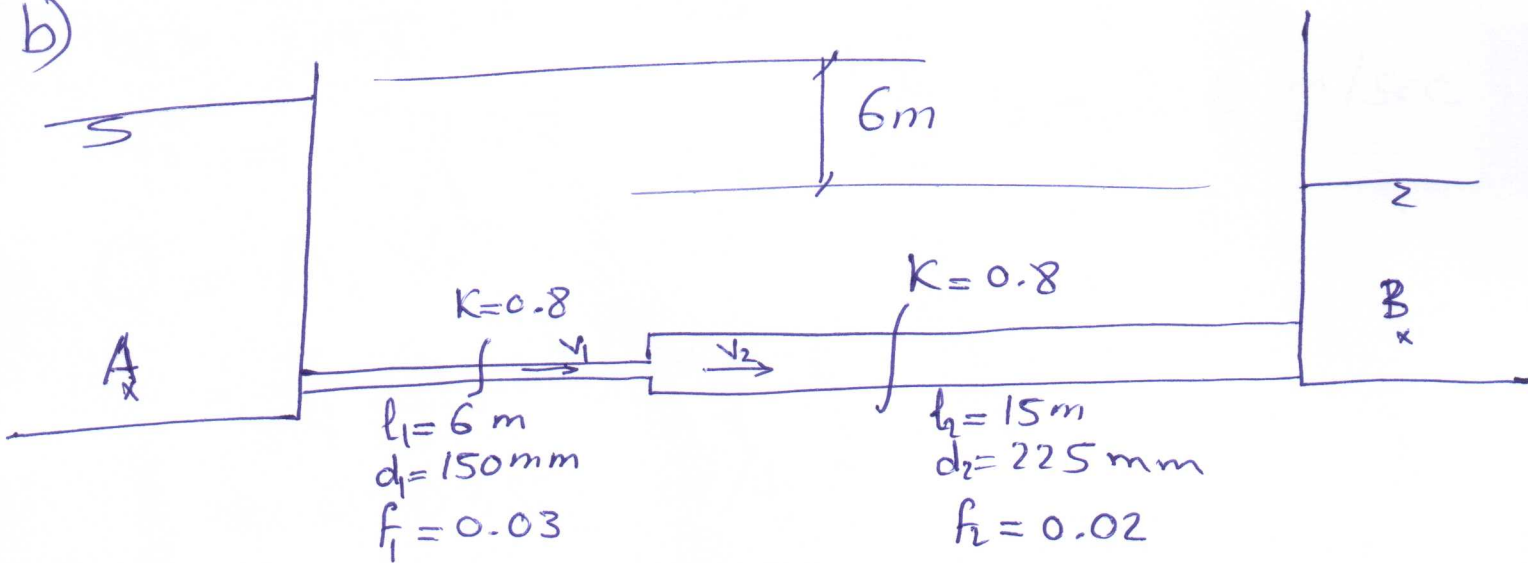 b)
6m
K=0.8
K=0.8
V1
V2
A
B
l1=6 m
d1=150mm
f1=0.03
l2=15m
d2=225 mm
f2=0.02